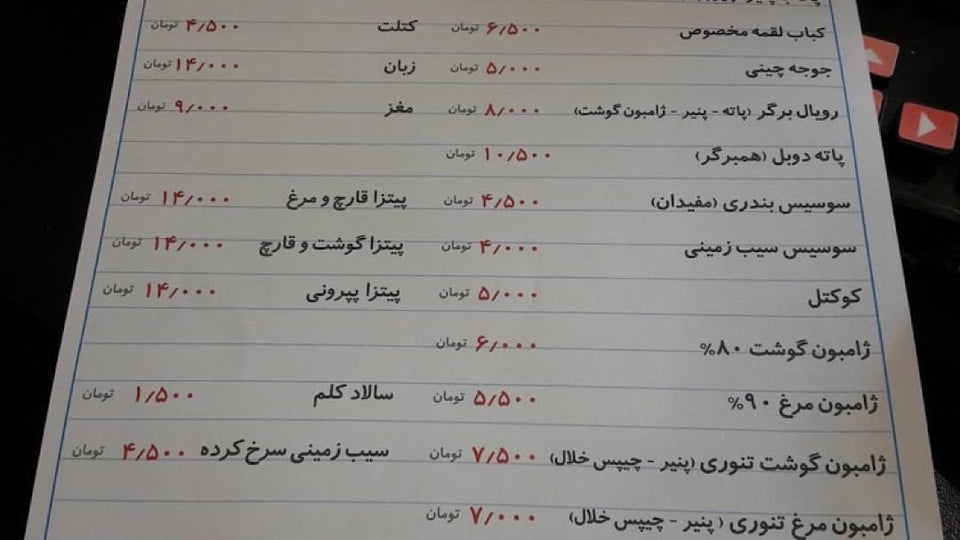 کباب لقمه مخصوص ۶٫۵۰۰ تومان کتلت ۴٫۵۰۰ تومان
جوجه چینی ۵٫۰۰۰ تومان زبان ۱۴٫۰۰۰ تومان
رویال برگر (پاته - پنیر - ژامبون گوشت) ۸٫۰۰۰ تومان مغز ۹٫۰۰۰ تومان
پاته دوبل (همبرگر) ۱۰٫۵۰۰ تومان
سوسیس بندری (مفیدان) ۴٫۵۰۰ تومان پیتزا قارچ و مرغ ۱۴٫۰۰۰ تومان
سوسیس سیب زمینی ۴٫۰۰۰ تومان پیتزا گوشت و قارچ ۱۴٫۰۰۰ تومان
کوکتل ۵٫۰۰۰ تومان پیتزا پپرونی ۱۴٫۰۰۰ تومان
ژامبون گوشت ۸۰% ۶٫۰۰۰ تومان
ژامبون مرغ ۹۰% ۵٫۵۰۰ تومان سالاد کلم ۱٫۵۰۰ تومان
ژامبون گوشت تنوری (پنیر - چیپس خلال) ۷٫۵۰۰ تومان سیب زمینی سرخ کرده ۴٫۵۰۰ تومان
ژامبون مرغ تنوری ( پنیر - چیپس خلال) ۷٫۰۰۰ تومان